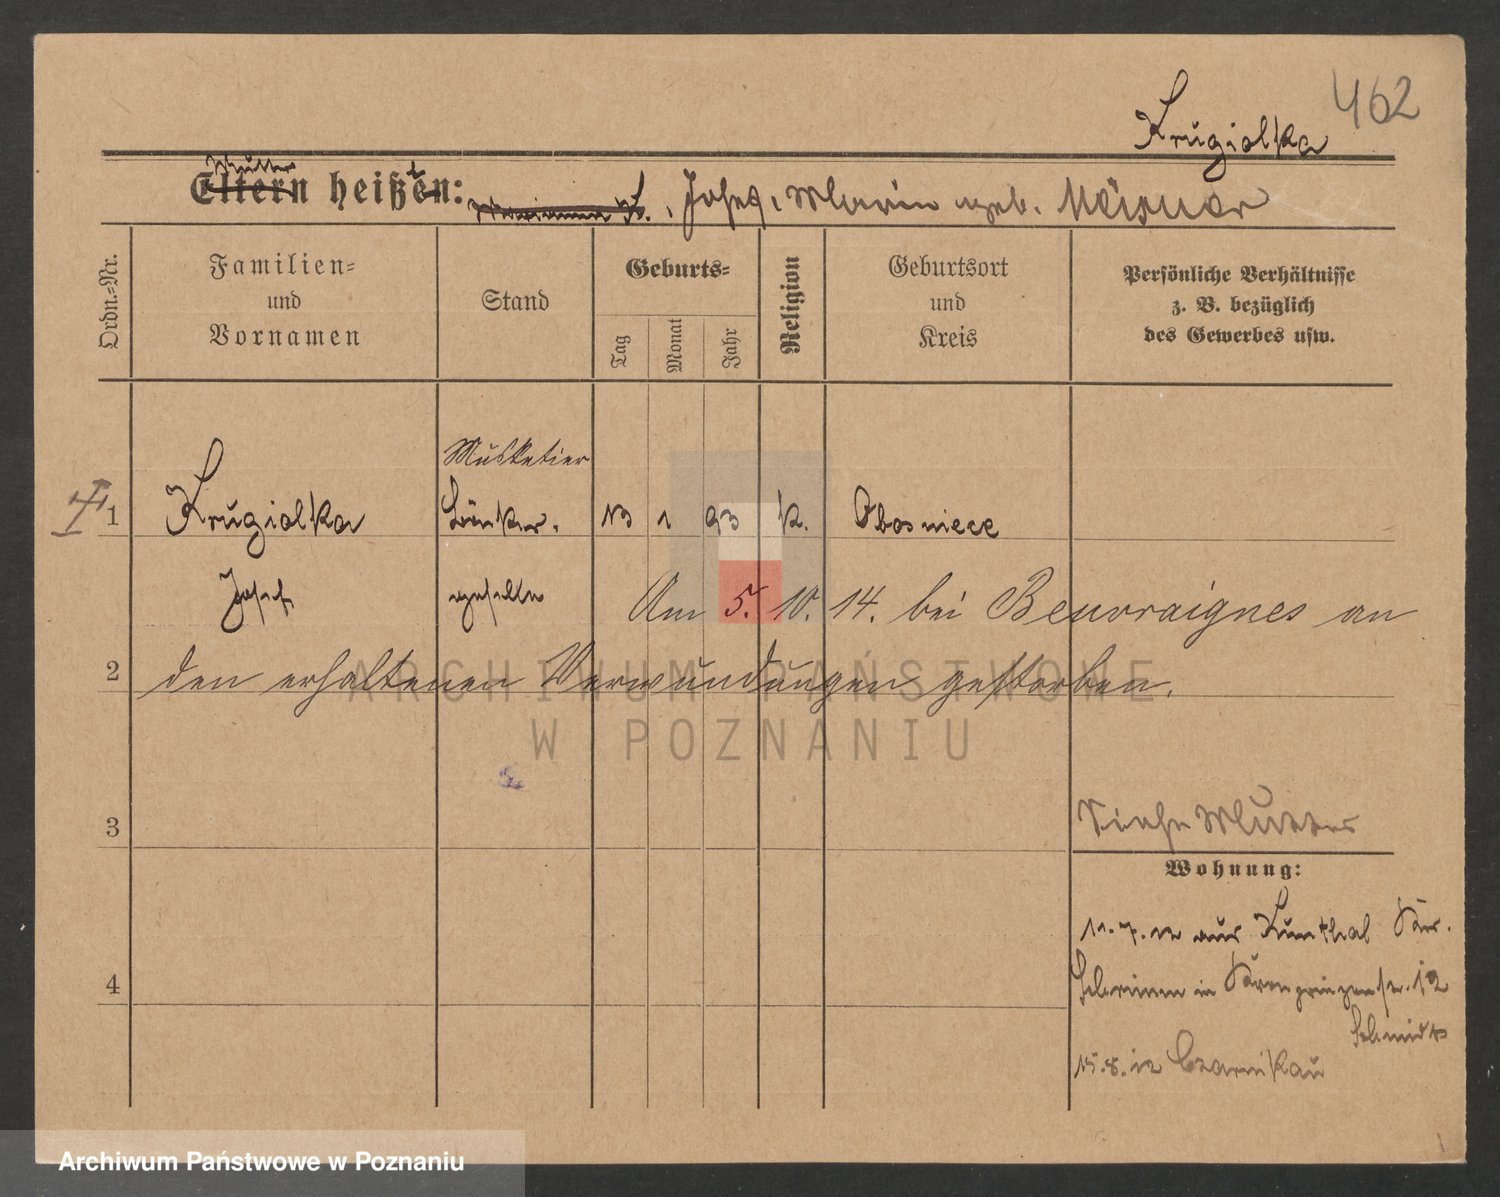 462
Krugiolka
Mutter
Eltern heißen: Josef, Marie geb. Meisner
Ordn.-Nr.
Familien-
und
Vornamen
Stand
Geburts-
Tag
Monat
Jahr
Religion
Geburtsort
und
Kreis
Persönliche Verhältnisse
z. B. bezüglich
des Gewerbes usw.
Musketier
1 Krugiolka 13 1 93 k.
Josef geselle
Am 5. 10. 14. bei Beuvraignes an
2 den erhaltenen Verwundungen gestorben.
ARCHIWUM PAŃSTWOWE
W POZNANIU
3
Siehe Mutter
Wohnung:
11.7.12 aus
4
in Kronprinzenstr. 12
Schmidt
15.8.12 Czarnikau
Archiwum Państwowe w Poznaniu